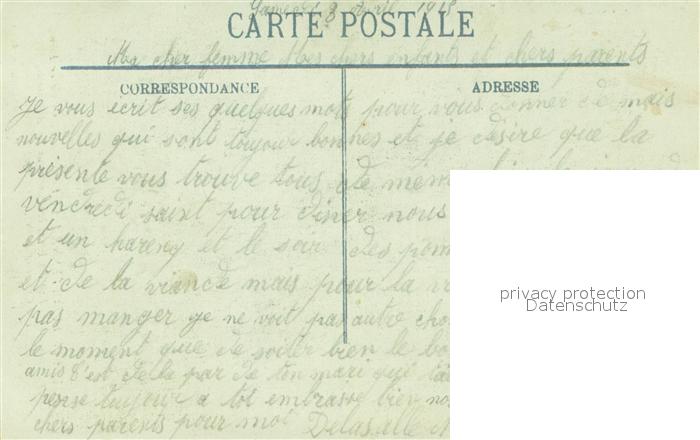 Samedi 3 Avril 1915
CARTE POSTALE
Ma cher femme Mes chers enfants et chers parents
CORRESPONDANCE
ADRESSE
Je vous ecrit ses quelques mots pour vous donner de mais
nouvelles qui sont toujour bonnes et je desire que la
presente vous trouve tous de meme
vendredi saint pour diner nous
et un hareng et le soir des pom
et de la viande mais pour la
pas manger je ne voit pas autre cho
le moment que de soiter bien le bo
amis c'est de la par de ton mari qui
pense toujour a toi embrasse bien no
chers parents pour moi
privacy protection
Datenschutz